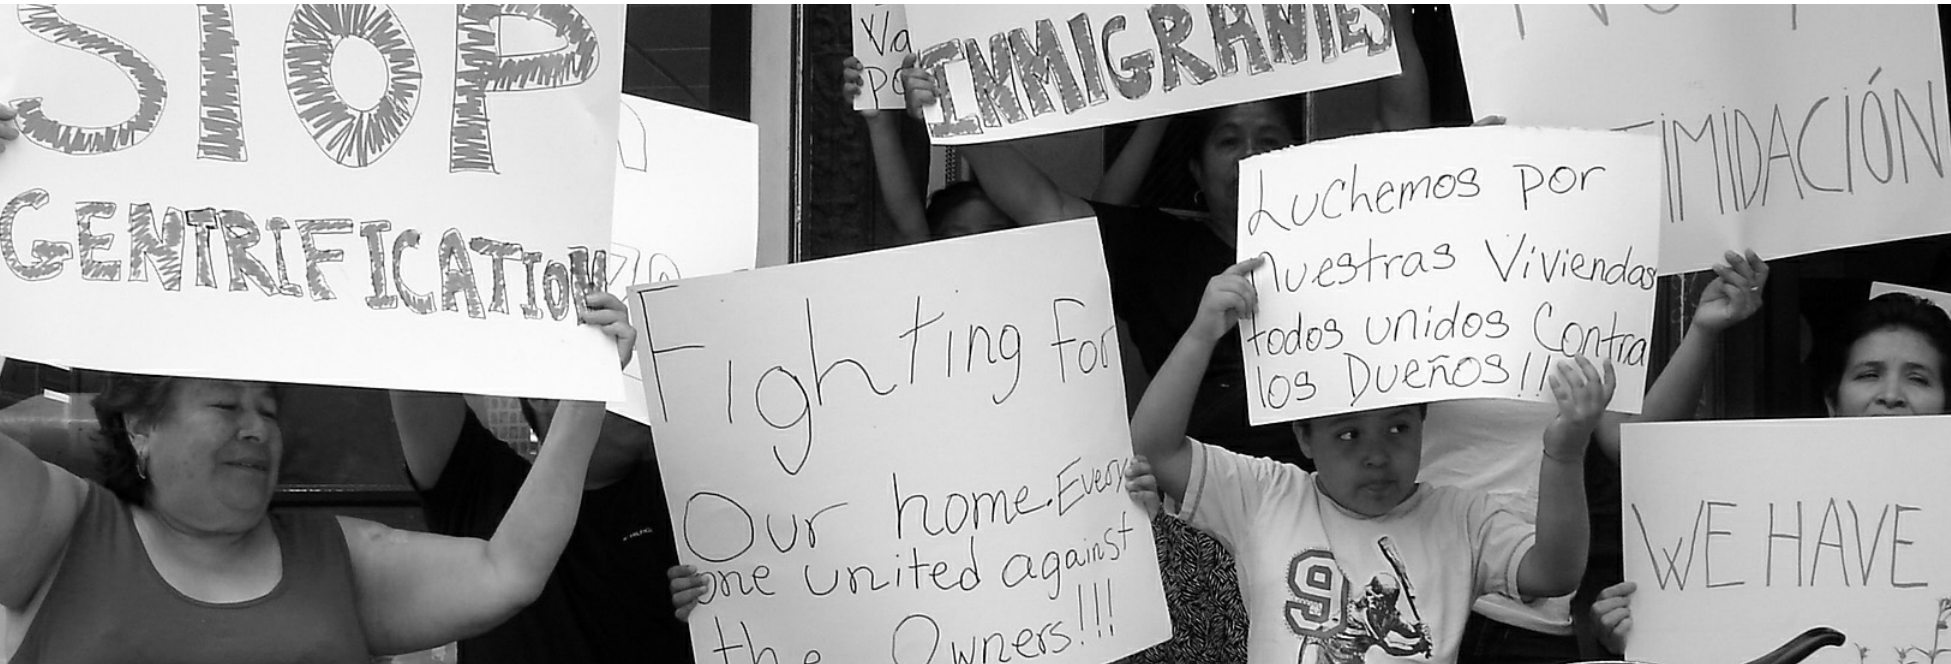 STOP
GENTRIFICATION
Va
po
INMIGRANTES
TIMIDACIÓN
Luchemos por
nuestras Viviendas
todos unidos Contra
los Dueños!!!
Fighting for
Our home. Every
one united against
the Owners!!!
9
WE HAVE